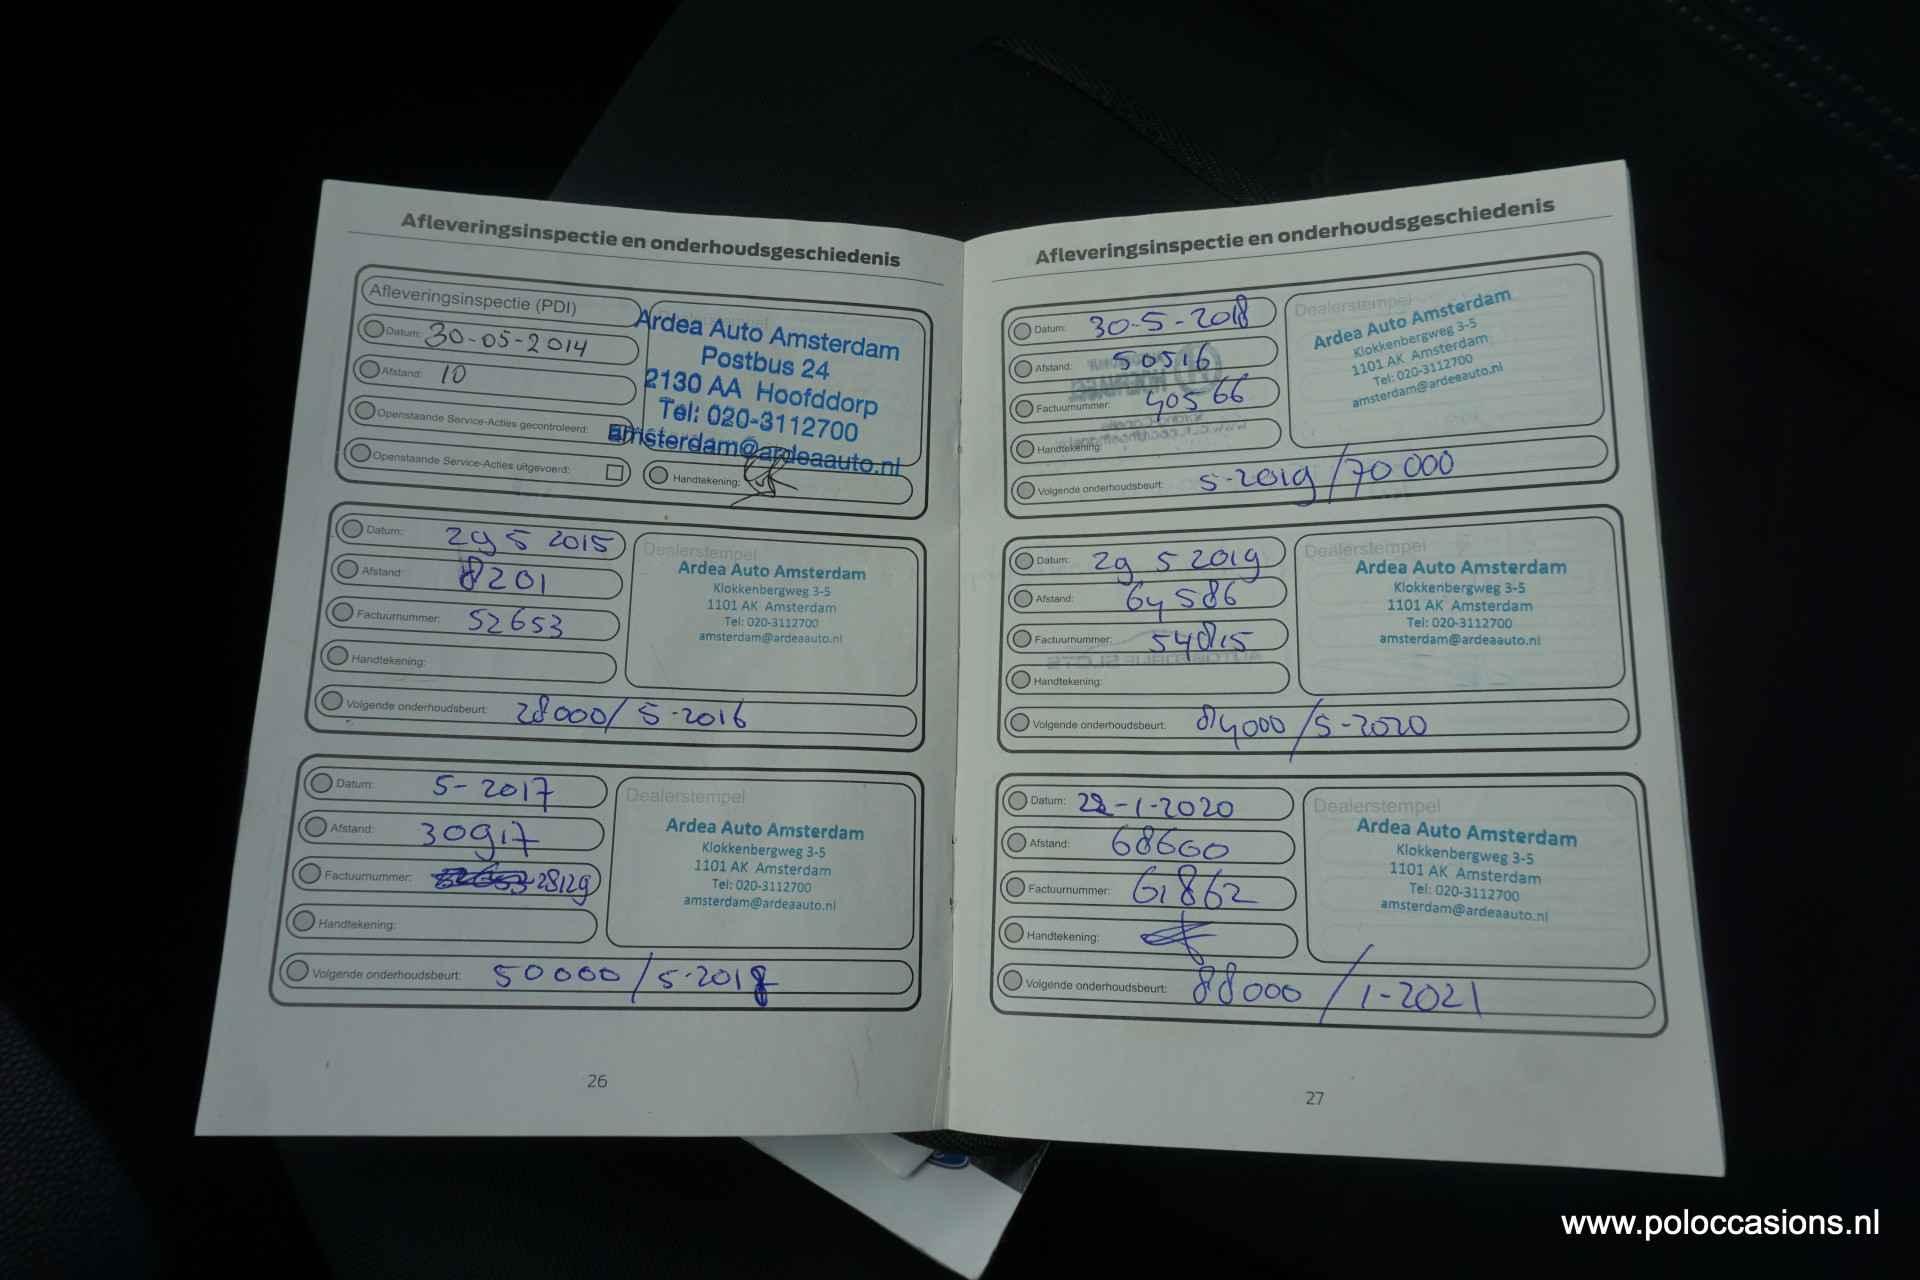 Afleveringsinspectie en onderhoudsgeschiedenis
Afleveringsinspectie (PDI)
Datum: 30-05-2014
Afstand: 10
Openstaande Service-Acties gecontroleerd:
Openstaande Service-Acties uitgevoerd:
Ardea Auto Amsterdam
Postbus 24
2130 AA Hoofddorp
Tel: 020-3112700
amsterdam@ardeaauto.nl
Handtekening:
Datum: 29 5 2015
Afstand: 8201
Factuurnummer: 52653
Handtekening:
Volgende onderhoudsbeurt: 28000/ 5-2016
Dealerstempel
Ardea Auto Amsterdam
Klokkenbergweg 3-5
1101 AK Amsterdam
Tel: 020-3112700
amsterdam@ardeaauto.nl
Datum: 5-2017
Afstand: 30917
Factuurnummer: 28129
Handtekening:
Volgende onderhoudsbeurt: 50000/5-2018
Dealerstempel
Ardea Auto Amsterdam
Klokkenbergweg 3-5
1101 AK Amsterdam
Tel: 020-3112700
amsterdam@ardeaauto.nl
26
Afleveringsinspectie en onderhoudsgeschiedenis
Datum: 30-5-2018
Afstand: 50516
Factuurnummer: 40566
Handtekening:
Volgende onderhoudsbeurt: 5-2019/70000
Dealerstempel
Ardea Auto Amsterdam
Klokkenbergweg 3-5
1101 AK Amsterdam
Tel: 020-3112700
amsterdam@ardeaauto.nl
Datum: 29 5 2019
Afstand: 64586
Factuurnummer: 54815
Handtekening:
Volgende onderhoudsbeurt: 84000/5-2020
Dealerstempel
Ardea Auto Amsterdam
Klokkenbergweg 3-5
1101 AK Amsterdam
Tel: 020-3112700
amsterdam@ardeaauto.nl
Datum: -1-2020
Afstand: 68600
Factuurnummer: 61862
Handtekening:
Volgende onderhoudsbeurt: 88000/1-2021
Dealerstempel
Ardea Auto Amsterdam
Klokkenbergweg 3-5
1101 AK Amsterdam
Tel: 020-3112700
amsterdam@ardeaauto.nl
27
www.poloccasions.nl